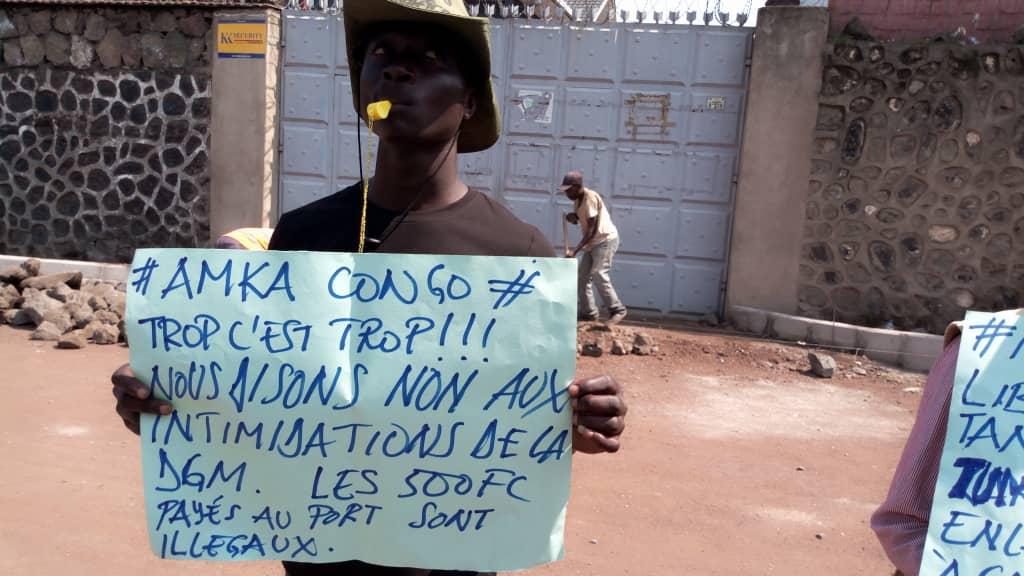 KK SECURITY
# AMKA CONGO #
TROP C'EST TROP!!!
NOUS DISONS NON AUX
INTIMIDATIONS DE LA
DGM. LES 500FC
PAYÉS AU PORT SONT
ILLEGAUX.
#
LIB
TAN
TUM
ENL